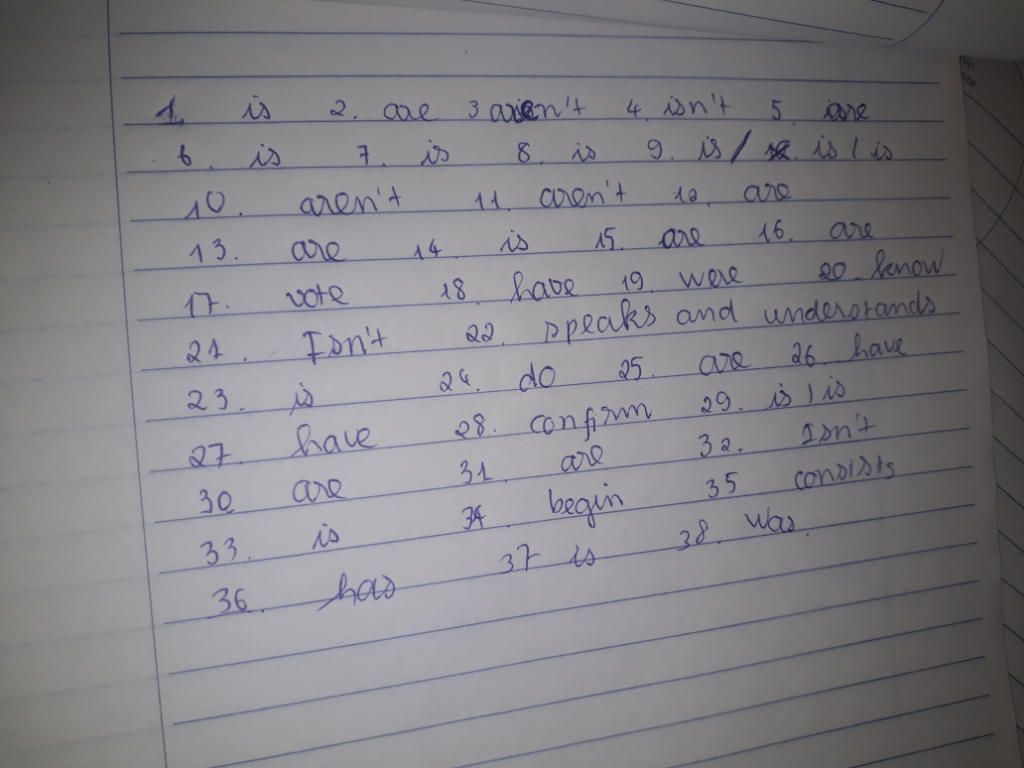 1. is 2. are 3 aren't 4. isn't 5. are
6. is 7. is 8. is 9. is / is / is
10. aren't 11. aren't 12. are
13. are 14. is 15. are 16. are
17. vote 18. have 19. were 20. know
21. Isn't 22. speaks and understands
23. is 24. do 25. are 26. have
27. have 28. confirm 29. is / is
30 are 31. are 32. Isn't
33. is 34. begin 35 consists
36. has 37 is 38. was.